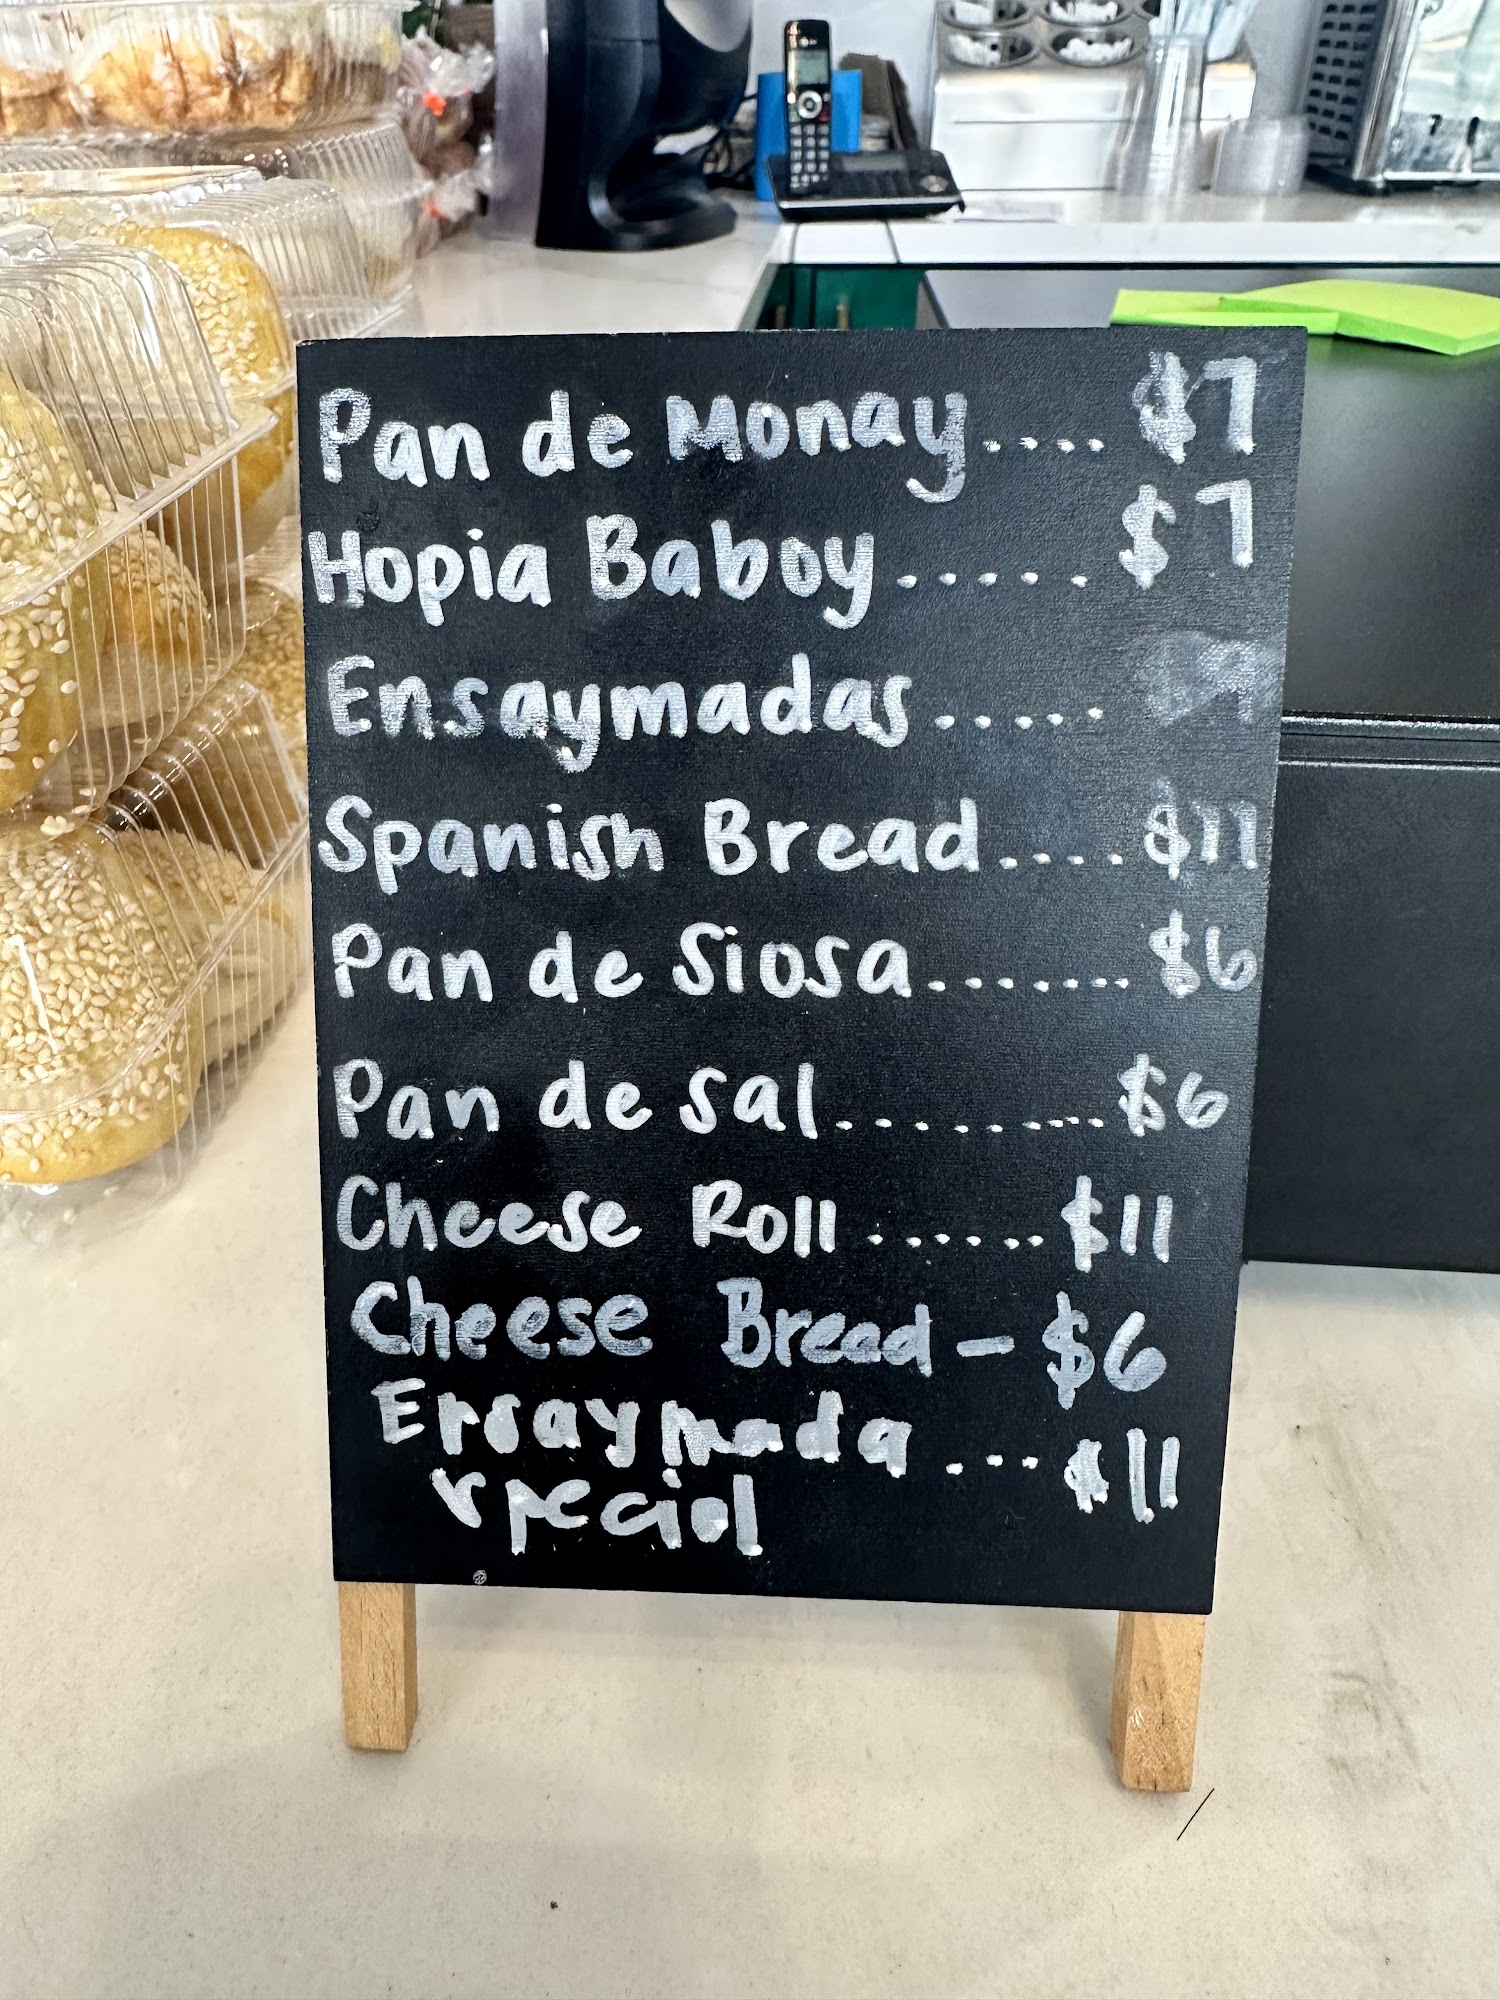 Pan de Monay.... $7
Hopia Baboy..... $7
Ensaymadas.....
Spanish Bread.... $11
Pan de Siosa....... $6
Pan de sal......... $6
Cheese Roll...... $11
Cheese Bread - $6
Ensaymada ... $11
special